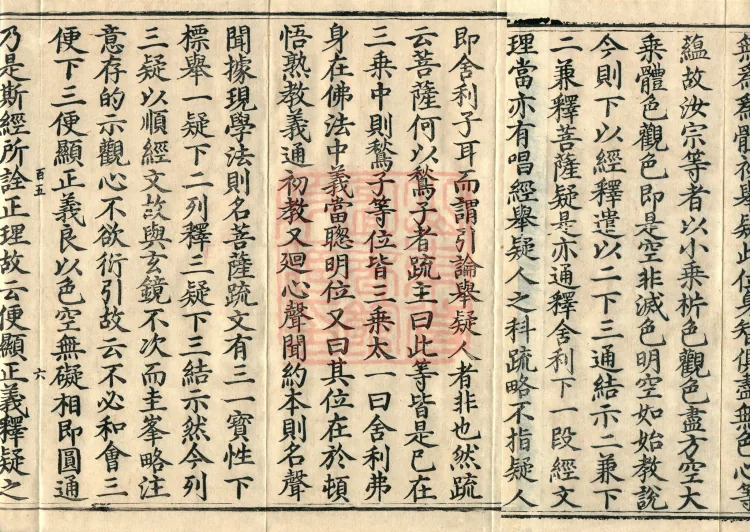 蘊故汝宗等者以小乘析色觀色盡方空大
乘體色觀色即是空非滅色明空如始教說
今則下以經釋遣以二下三通結示二兼下
二兼釋菩薩疑是亦通釋舍利下一段經文
理當亦有唱經舉疑人之科疏略不指疑人
即舍利子耳而謂引論舉疑人者非也然疏
云菩薩何以鶖子者疏主曰此等皆是已在
三乘中則鶖子等位皆三乘太一曰舍利弗
身在佛法中義當聰明位又曰其位在於頓
悟熟教義通初教又廻心聲聞約本則名聲
聞據現學法則名菩薩疏文有三一寶性下
標舉一疑下二列釋三疑下三結示然今列
三疑以順經文故與玄鏡不次而圭峯略注
意存的示觀心不欲衍引故云不必和會三
便下三便顯正義良以色空無礙相即圓通
百五
六
乃是斯經所詮正理故云便顯正義釋疑之